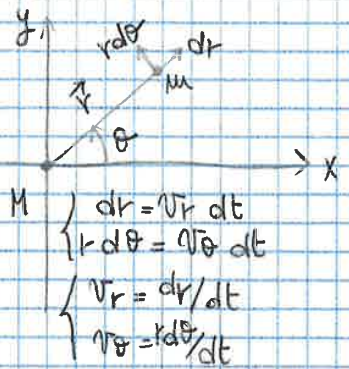 y
rdθ dr
r⃗ m
θ
x
M
{ dr = Vr dt
r dθ = Vθ dt
{ Vr = dr/dt
Vθ = rdθ/dt